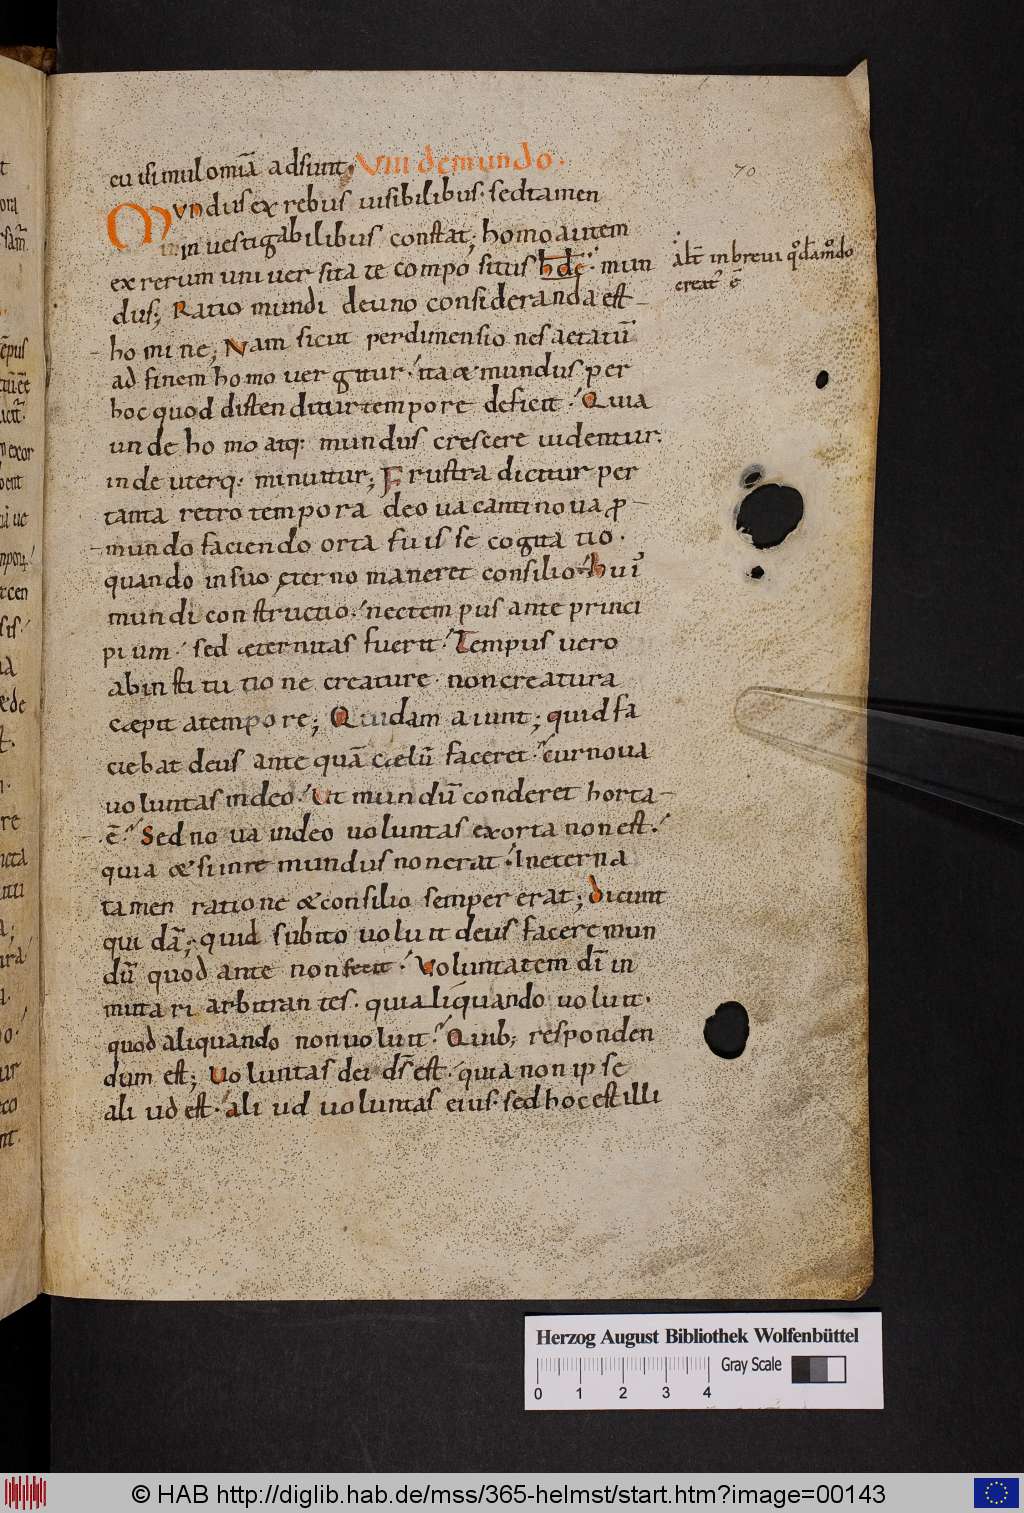 cui simul omīa adsunt; VIII de mundo.
70
Mundus ex rebus uisibilibus. sed tamen
inuestigabilibus constat; homo autem
ex rerum uniuersitate compositus
mun
alt in breui
creat ē
dus; Ratio mundi de uno consideranda est
homine; Nam sicut per dimensiones aetatū
ad finem homo uergitur. ita & mundus per
hoc quod distenditur tempore deficit. Quia
unde homo atq: mundus crescere uidentur.
inde uterq: minuitur; Frustra dicitur per
tanta retro tempora deo uacanti noua p
mundo faciendo orta fuisse cogitatio.
quando in suo ęterno maneret consilio
mundi constructio. nec tempus ante princi
pium. sed æternitas fuerit. Tempus uero
ab institutione creature. non creatura
cæpit a tempore; Quidam aiunt; quid fa
ciebat deus ante quā cælū faceret. cur noua
uoluntas in deo. Ut mundū conderet horta
ē. Sed noua in deo uoluntas exorta non est.
quia & si in re mundus non erat. In eterna
tamen ratione & consilio semper erat; Dicunt
qui dā; quid subito uoluit deus facere mun
dū quod ante non fecit. Voluntatem dī in
mutari arbitrantes. quia liquando uoluit.
quod aliquando non uoluit. Quib; responden
dum est; Uoluntas dei ds̄ est. quia non ipse
aliud est. aliud uoluntas eius. sed hoc est illi
Herzog August Bibliothek Wolfenbüttel
0 1 2 3 4
Gray Scale
© HAB http://diglib.hab.de/mss/365-helmst/start.htm?image=00143